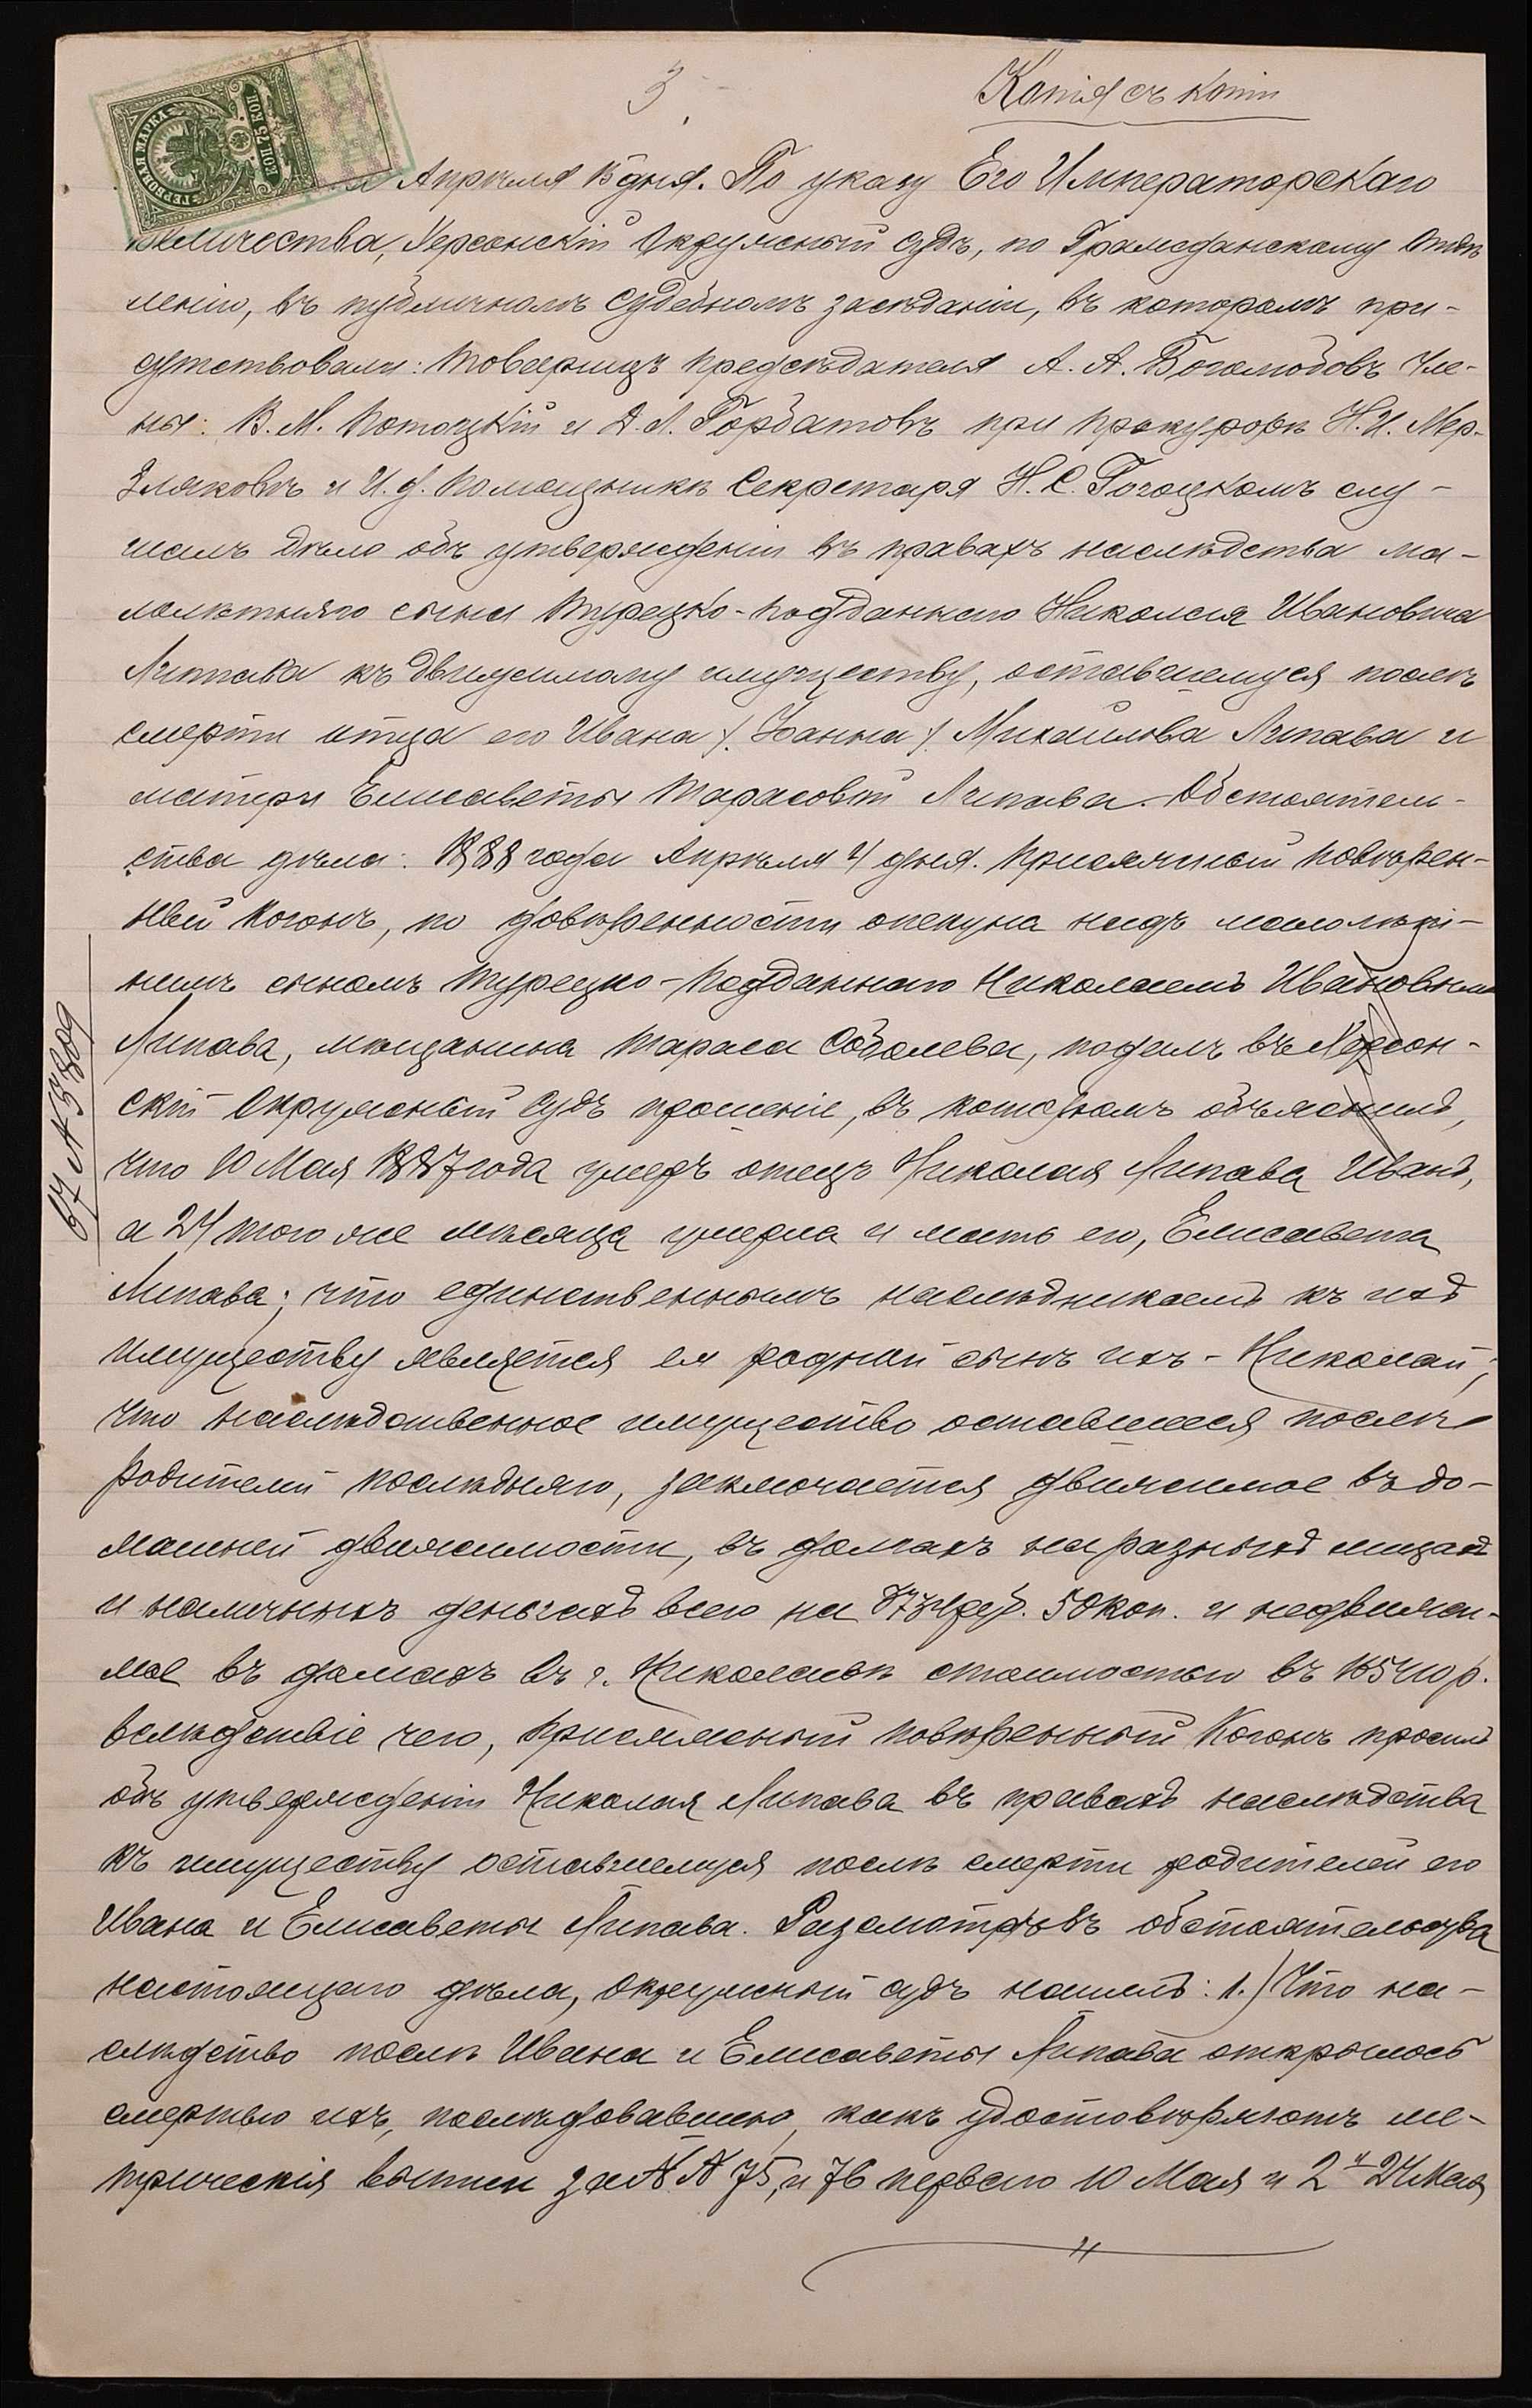 3.
Копія съ копіи
ГЕРБОВАЯ МАРКА
75 КОП
КОП 75
Апрѣля 13 дня. По указу Его Императорскаго
Величества, Херсонскій Окружный Судъ, по Гражданскому Отдѣ
ленію, въ публичномъ судебномъ засѣданіи, въ которомъ при-
сутствовали: Товарищъ Предсѣдателя А. А. Боголюбовъ Чле-
ны: В. М. Потоцкій и А. Л. Горбатовъ при Прокурорѣ Н. И. Мер-
зляковѣ и И. д. Помощника Секретаря Н. С. Гогоцкомъ слу-
шалъ дѣло объ утвержденіи въ правахъ наслѣдства ма-
лолѣтняго сына Турецко-подданнаго Николая Ивановича
Липава къ движимому имуществу, оставшемуся послѣ
смерти отца его Ивана /. Іоанна /. Михайлова Липава и
матери Елисаветы Тарасовой Липава. Обстоятель-
ства дѣла: 1888 года Апрѣля 4 дня. Присяжный повѣрен-
ный Коганъ, по довѣренности опекуна надъ малолѣт-
нимъ сыномъ Турецко-Подданнаго Николаемъ Ивановымъ
Липава, мѣщанина Тараса Соболева, подалъ въ Херсон-
скій Окружный Судъ прошеніе, въ которомъ объяснилъ,
что 10 Мая 1887 года умеръ отецъ Николая Липава Иванъ,
а 24 того же мѣсяца умерла и мать его, Елисавета
Липава; что единственнымъ наслѣдникомъ къ ихъ
имуществу является родной сынъ ихъ - Николай;
что наслѣдственное имущество оставшееся послѣ
родителей послѣдняго, заключается движимое въ до-
машней движимости, въ долгахъ на разныхъ лицахъ
и наличныхъ деньгахъ всего на руб. 50 коп. и недвижи-
мое въ домахъ въ г. Николаевѣ стоимостью въ р.
вслѣдствіе чего, присяжный повѣренный Коганъ просилъ
объ утвержденіи Николая Липава въ правахъ наслѣдства
къ имуществу оставшемуся послѣ смерти родителей его
Ивана и Елисаветы Липава. Разсмотрѣвъ обстоятельства
настоящаго дѣла, Окружный судъ нашелъ: 1.) Что на-
слѣдство послѣ Ивана и Елисаветы Липава открылось
смертью ихъ, послѣдовавшею, какъ удостовѣряютъ ме-
трическія выписи за №№ 75, и 76 перваго 10 Мая и 2й 24 Мая